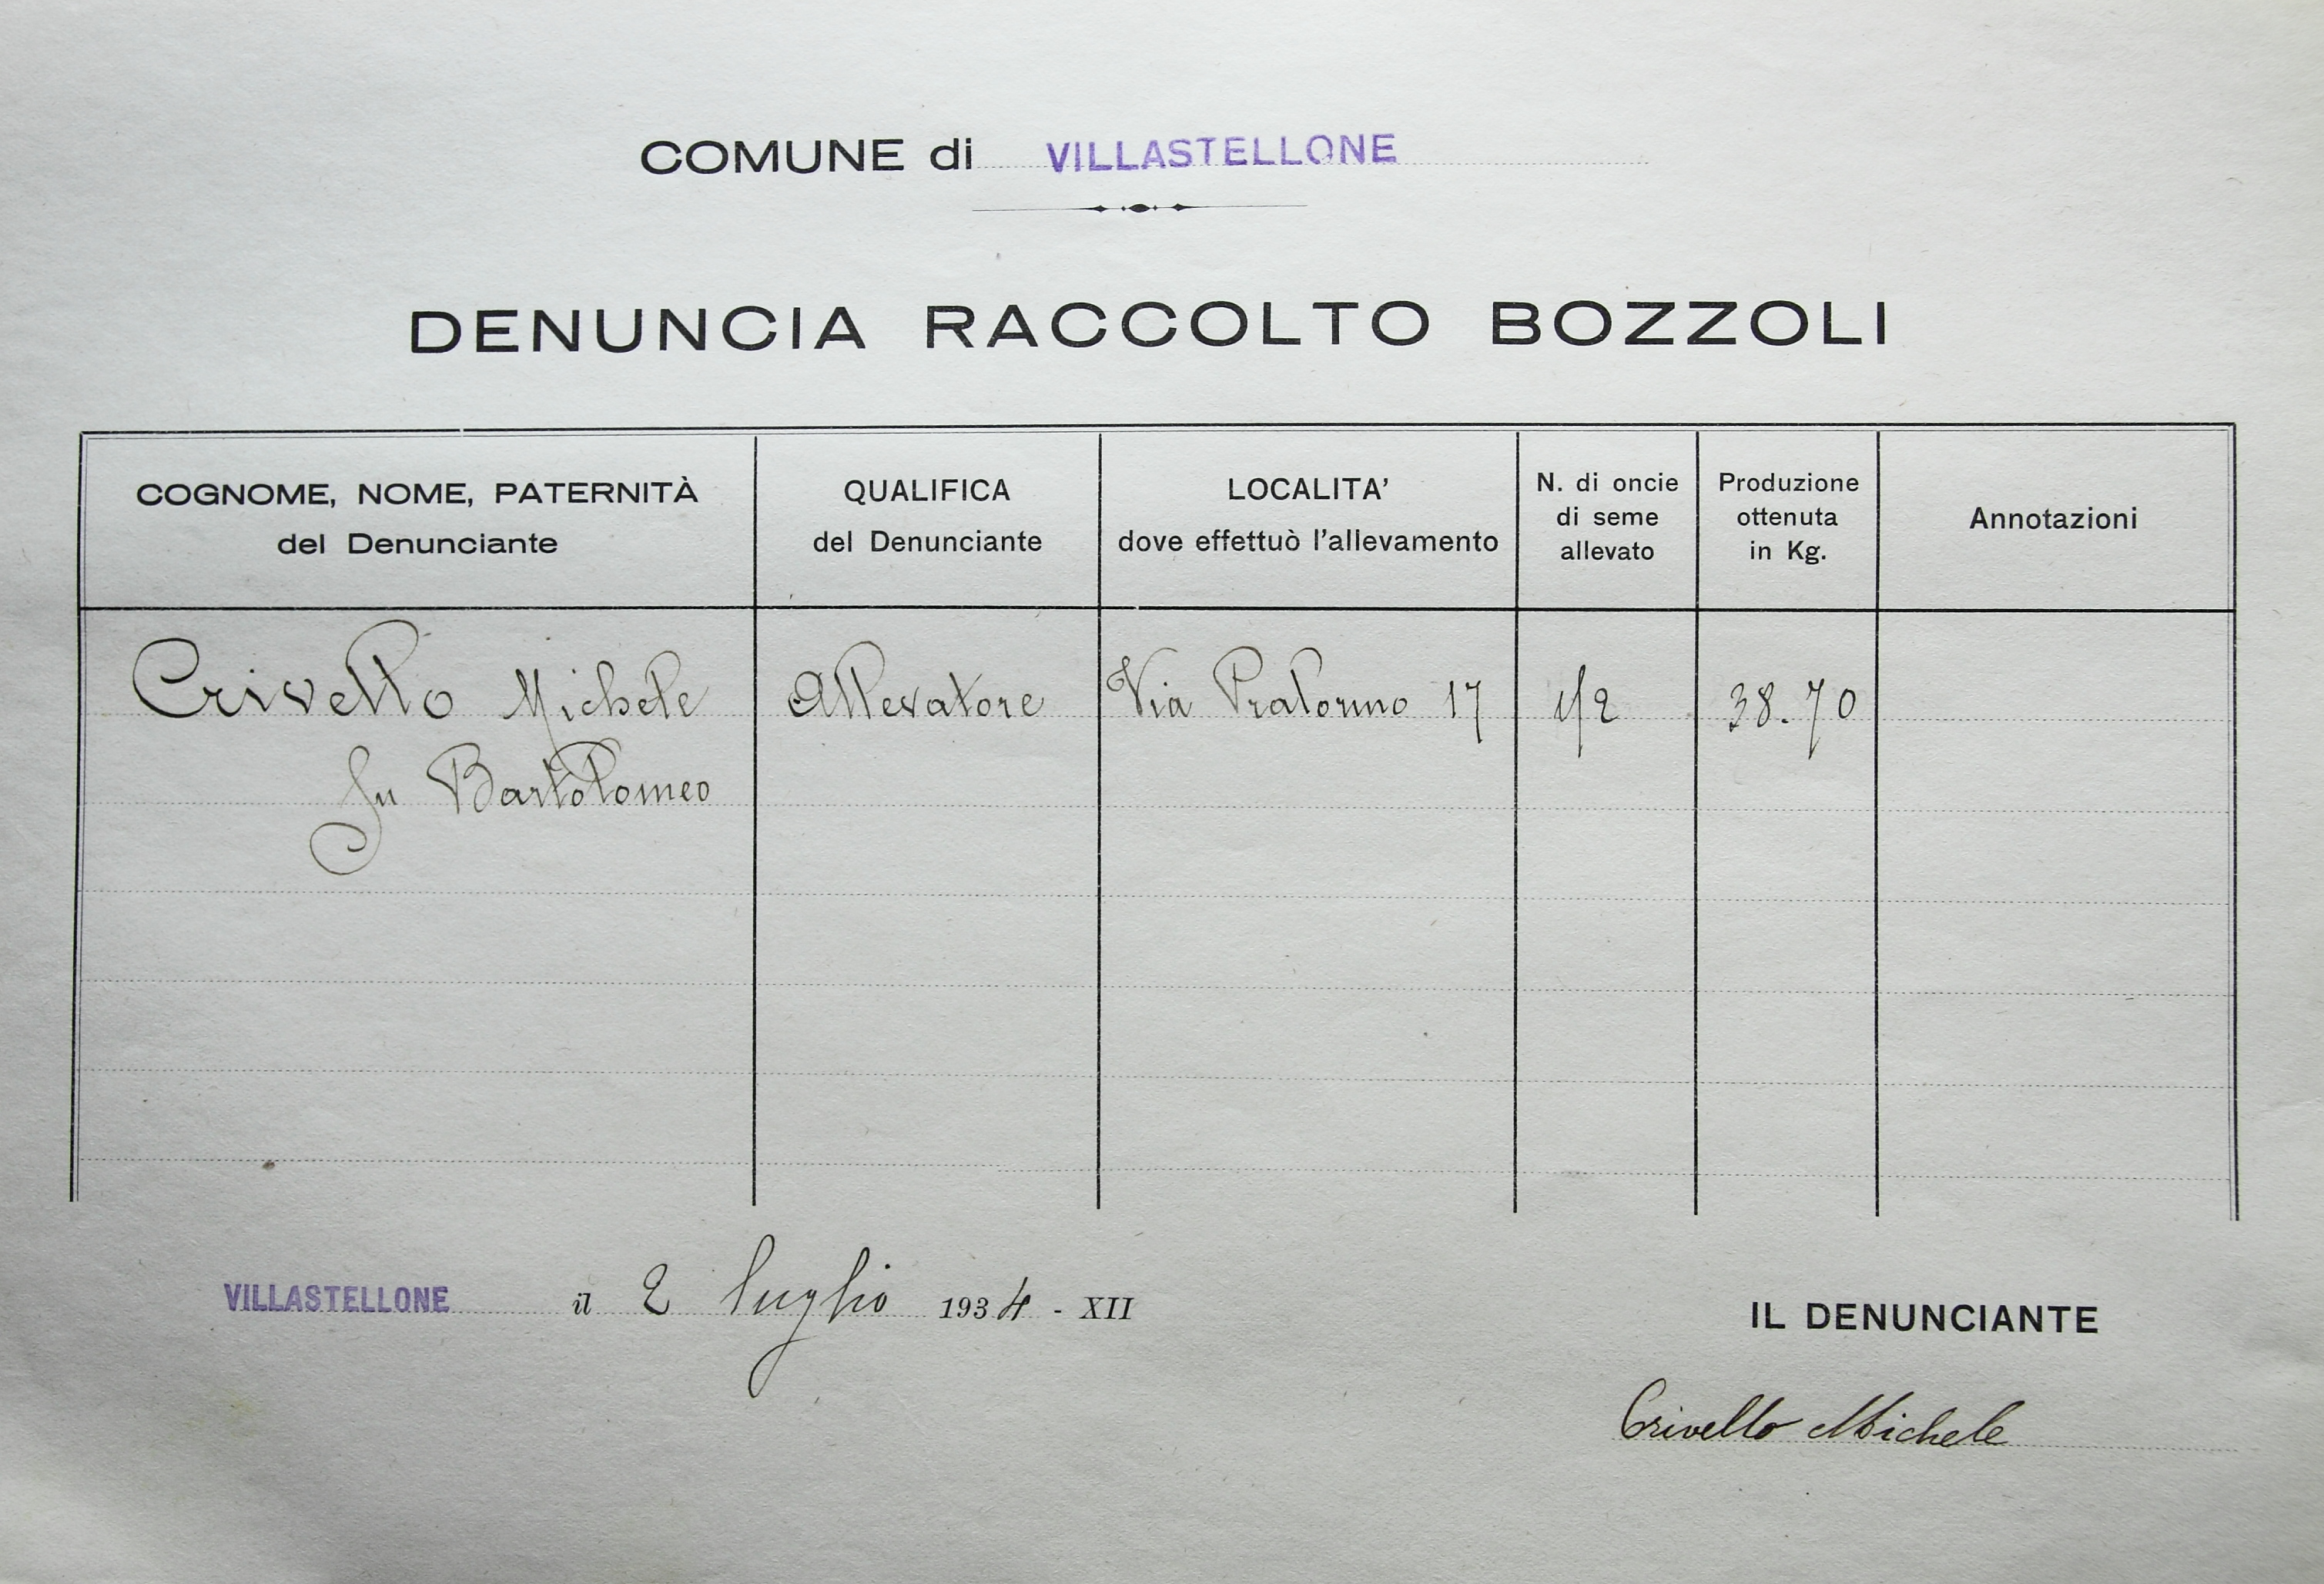 COMUNE di VILLASTELLONE
DENUNCIA RACCOLTO BOZZOLI
COGNOME, NOME, PATERNITÀ
del Denunciante
QUALIFICA
del Denunciante
LOCALITA'
dove effettuò l'allevamento
N. di oncie
di seme
allevato
Produzione
ottenuta
in Kg.
Annotazioni
Crivello Michele Allevatore Via Pralormo 17 1/2 38.70
fu Bartolomeo
VILLASTELLONE il 2 luglio 1934 - XII
IL DENUNCIANTE
Crivello Michele